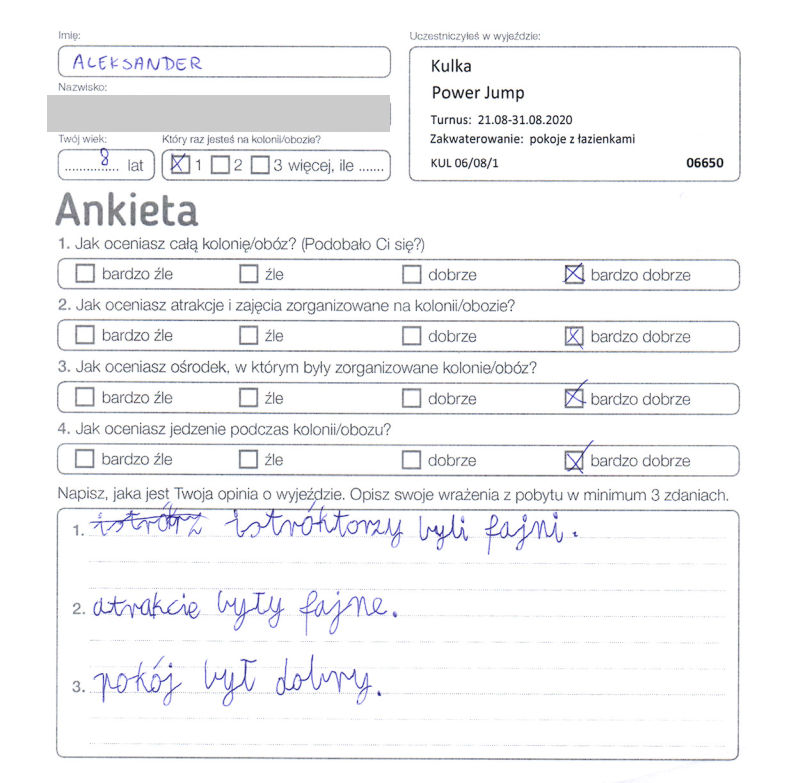 Imię:
ALEKSANDER
Nazwisko:
Twój wiek:
8 lat
Który raz jesteś na kolonii/obozie?
1 2 3 więcej, ile .......
Uczestniczyłeś w wyjeździe:
Kulka
Power Jump
Turnus: 21.08-31.08.2020
Zakwaterowanie: pokoje z łazienkami
KUL 06/08/1 06650
Ankieta
1. Jak oceniasz całą kolonię/obóz? (Podobało Ci się?)
bardzo źle źle dobrze bardzo dobrze
2. Jak oceniasz atrakcje i zajęcia zorganizowane na kolonii/obozie?
bardzo źle źle dobrze bardzo dobrze
3. Jak oceniasz ośrodek, w którym były zorganizowane kolonie/obóz?
bardzo źle źle dobrze bardzo dobrze
4. Jak oceniasz jedzenie podczas kolonii/obozu?
bardzo źle źle dobrze bardzo dobrze
Napisz, jaka jest Twoja opinia o wyjeździe. Opisz swoje wrażenia z pobytu w minimum 3 zdaniach.
1. istróktorzy byli fajni.
2. atrakcie były fajne.
3. pokój był dobry.